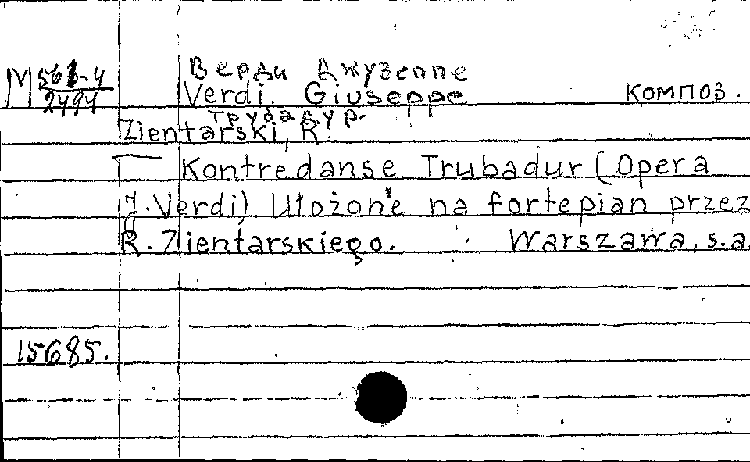 Верди Джузеппе
M 561-4
2494
Verdi, Giuseppe композ.
Трубадур.
Zientarski, R.
Kontredanse Trubadur (Opera
J. Verdi) Ułożone na fortepian przez
R. Zientarskiego. Warszawa, s.a.
15685.